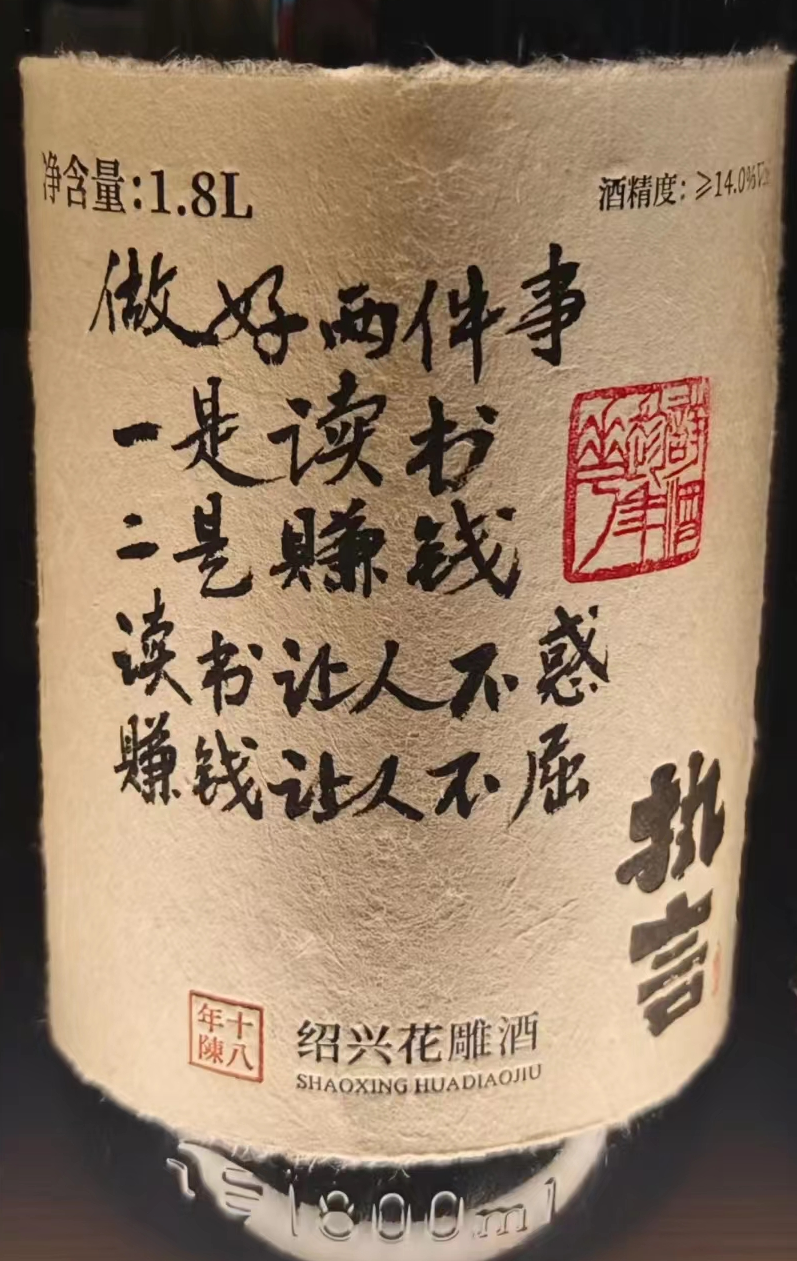 净含量:1.8L
酒精度:≥14.0%
做好两件事
一是读书
二是賺钱
读书让人不惑
賺钱让人不屈
执言
十八
年陳
绍兴花雕酒
SHAOXING HUADIAOJIU
1800ml